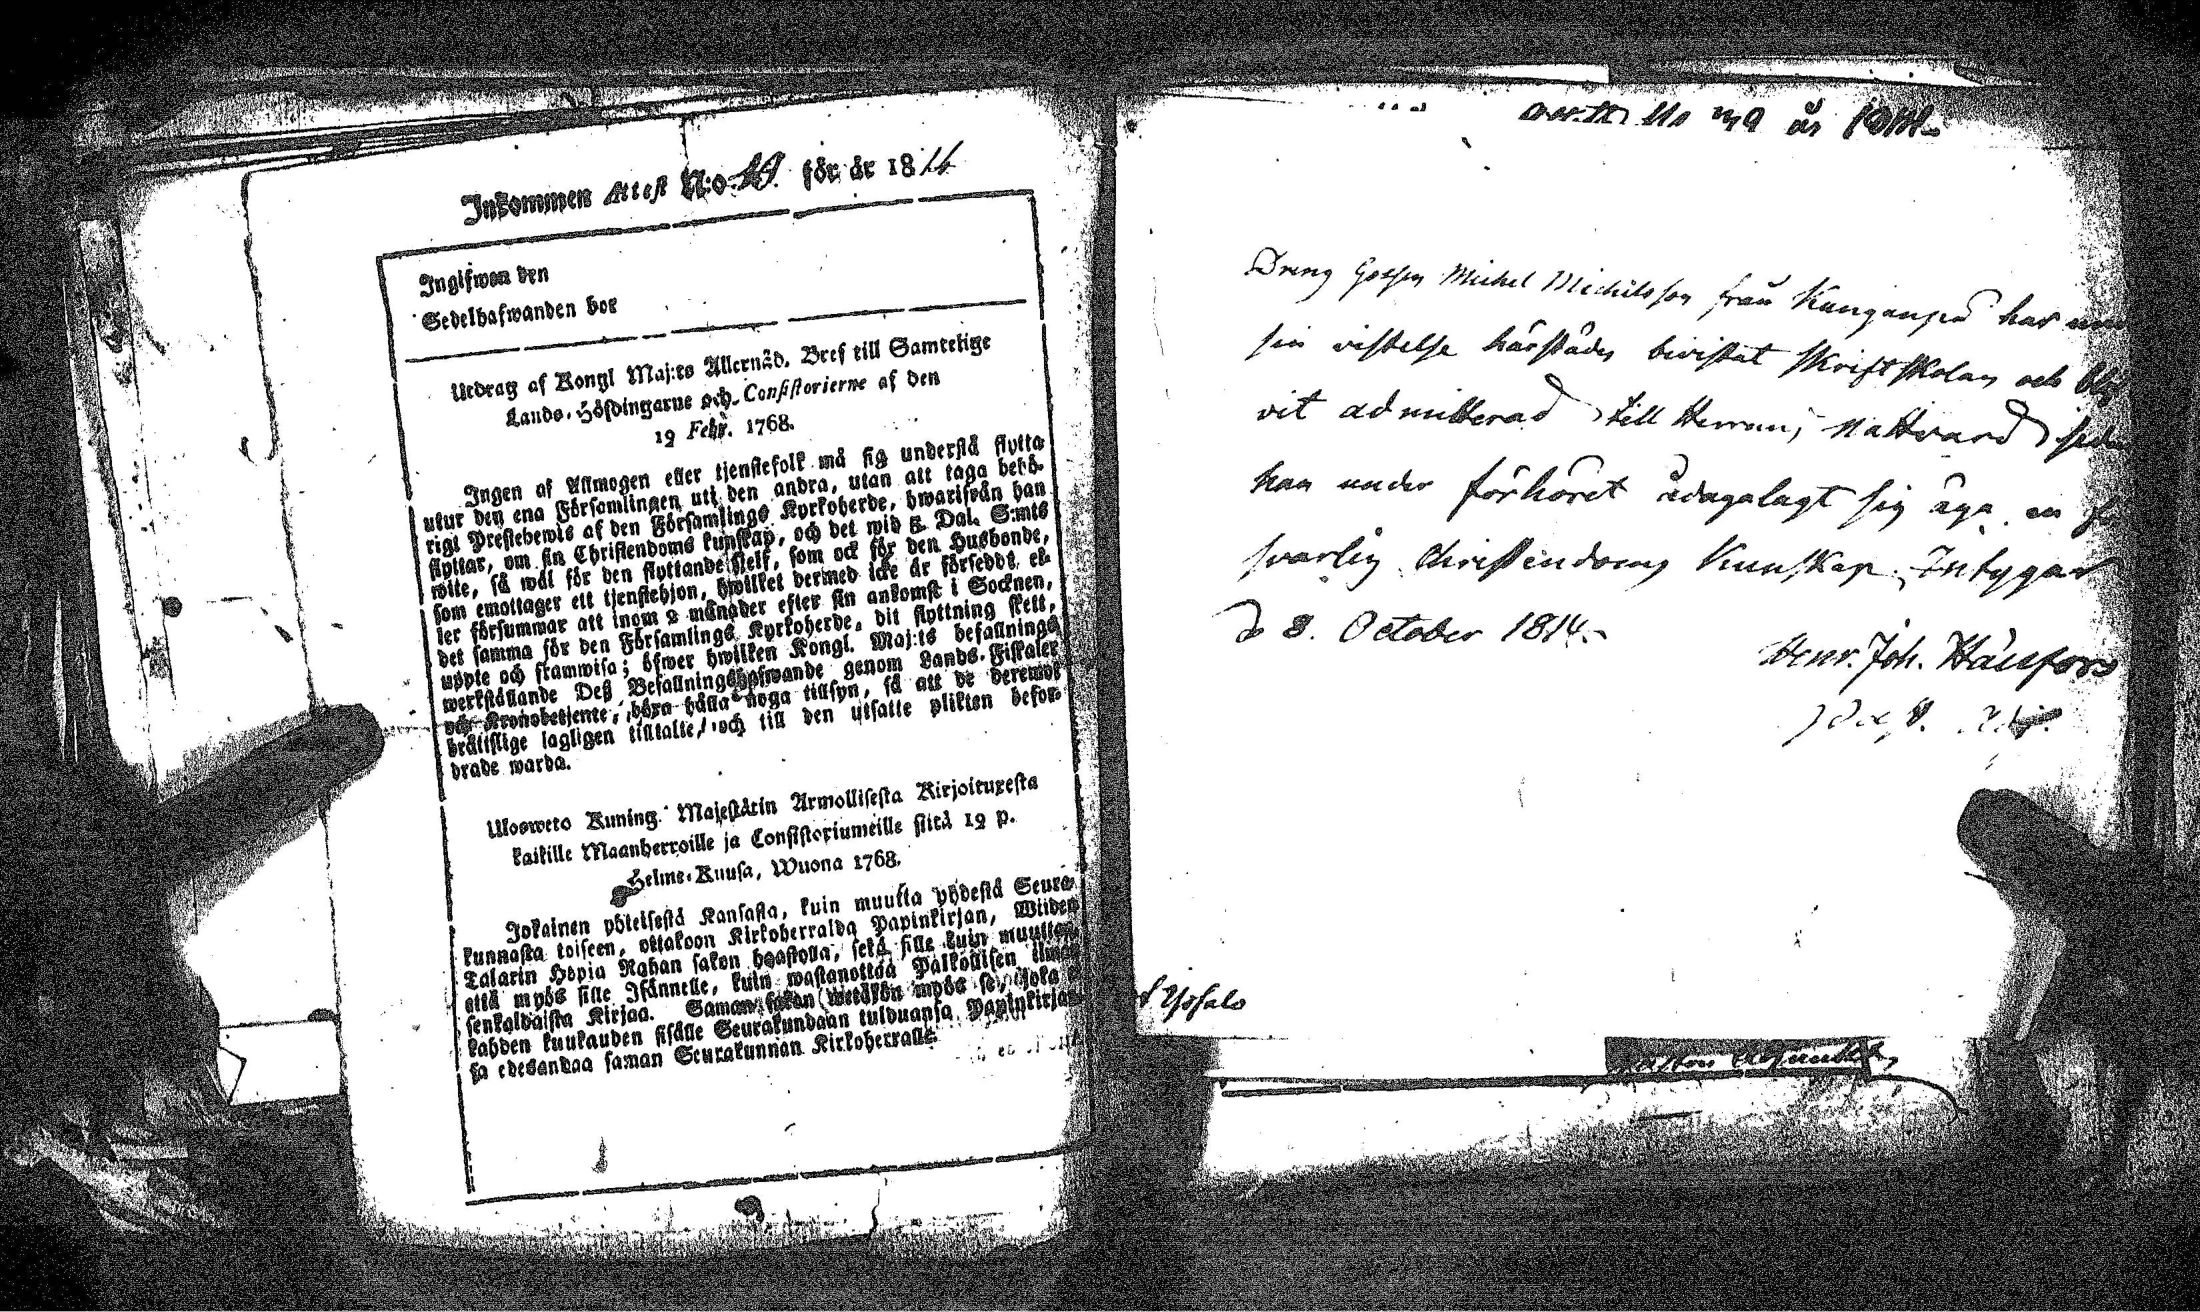 Inkommen Attest N:o för år 18
Ingifwen den
Sedelhafwanden bor
Utdrag af Kongl Maj:ts Allernåd. Bref till Samtelige
Lands-Höfdingarne och Consistorierne af den
19 Febr. 1768.
Ingen af Allmogen eller tjenstefolk må sig understå flytta
utur den ena Församlingen uti den andra, utan att taga behö-
rigt Prestebewis af den Församlings Kyrkoherde, hwarifrån han
flyttar, om sin Christendoms kunskap, och det wid 5 Dal. S:mts
wite, så wäl för den flyttande sjelf, som ock för den Husbonde,
som emottager ett tjenstehjon, hwilket dermed icke är förseddt, el-
ler försummar att inom 2 månader efter sin ankomst i Socknen,
det samma för den Församlings Kyrkoherde, dit flyttning skett,
uppte och framwisa; öfwer hwilken Kongl. Maj:ts befallnings
werkställande Deß Befallningshafwande genom Lands-Fiskaler
och Kronobetjente, böra hålla noga tillsyn, så att de deremot
brätslige lagligen tilltalte, och till den utsatte plikten befor-
drade warda.
Ulosweto Kuning. Majestätin Armollisesta Kirjoituxesta
kaikille Maanherroille ja Consistoriumeille siitä 19 p.
Helme-Kuusa, Wuona 1768.
Jokainen yhteisestä Kansasta, kuin muutta yhdestä Seura-
kunnasta toiseen, ottakoon Kirkoherralda Papinkirjan, Wiiden
Talarin Hopia Rahan sakon haastolla, sekä sille kuin muuttaa
että myös sille Isännelle, kuin wastanottaa Palkollisen ilman
senkaldaista Kirjaa. Saman sakon wetäkön myös se, joka
kahden kuukauden sisälle Seurakundaan tulduansa Papinkirjan
sa edesandaa saman Seurakunnan Kirkoherralle
Dreng Gossen Michel Michelsson från Kanganpä har
sin vistelse härstädes bivistat Skriftskolan och
vit admitterad till Herrans Nattvard
han under förhöret ådagalagt sig äga en
svarlig Christendoms Kunskap. Intygar
d 8. October 1814.
Henr. Joh. Hällfors